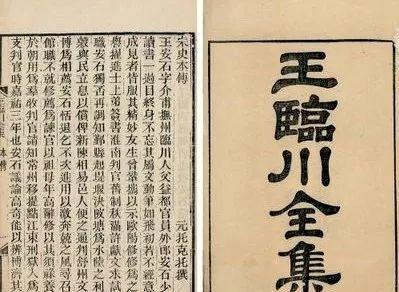 王臨川全集
宋史本傳
元托克托撰
王安石字介甫撫州臨川人父益都官員外郎安石少
讀書一過目終身不忘其屬文動筆如飛初若不經意
成見者皆服其精妙友生曾鞏攜以示歐陽修修爲
譽擢進士上第簽書淮南判官舊制秩滿許獻文求試
職安石獨否再調知鄞縣起堤堰決陂塘爲水陸之利
穀與民立息以償俾新陳相易邑人便之通判舒州文
博爲相薦安石恬退乞不次進用以激奔競之風尋召
館職不就修薦爲諫官以祖母年高辭修以其須祿養
於朝用爲羣牧判官請知常州移提點江東刑獄入爲
支判官時嘉祐三年也安石議論高奇能以辨博濟其
本傳